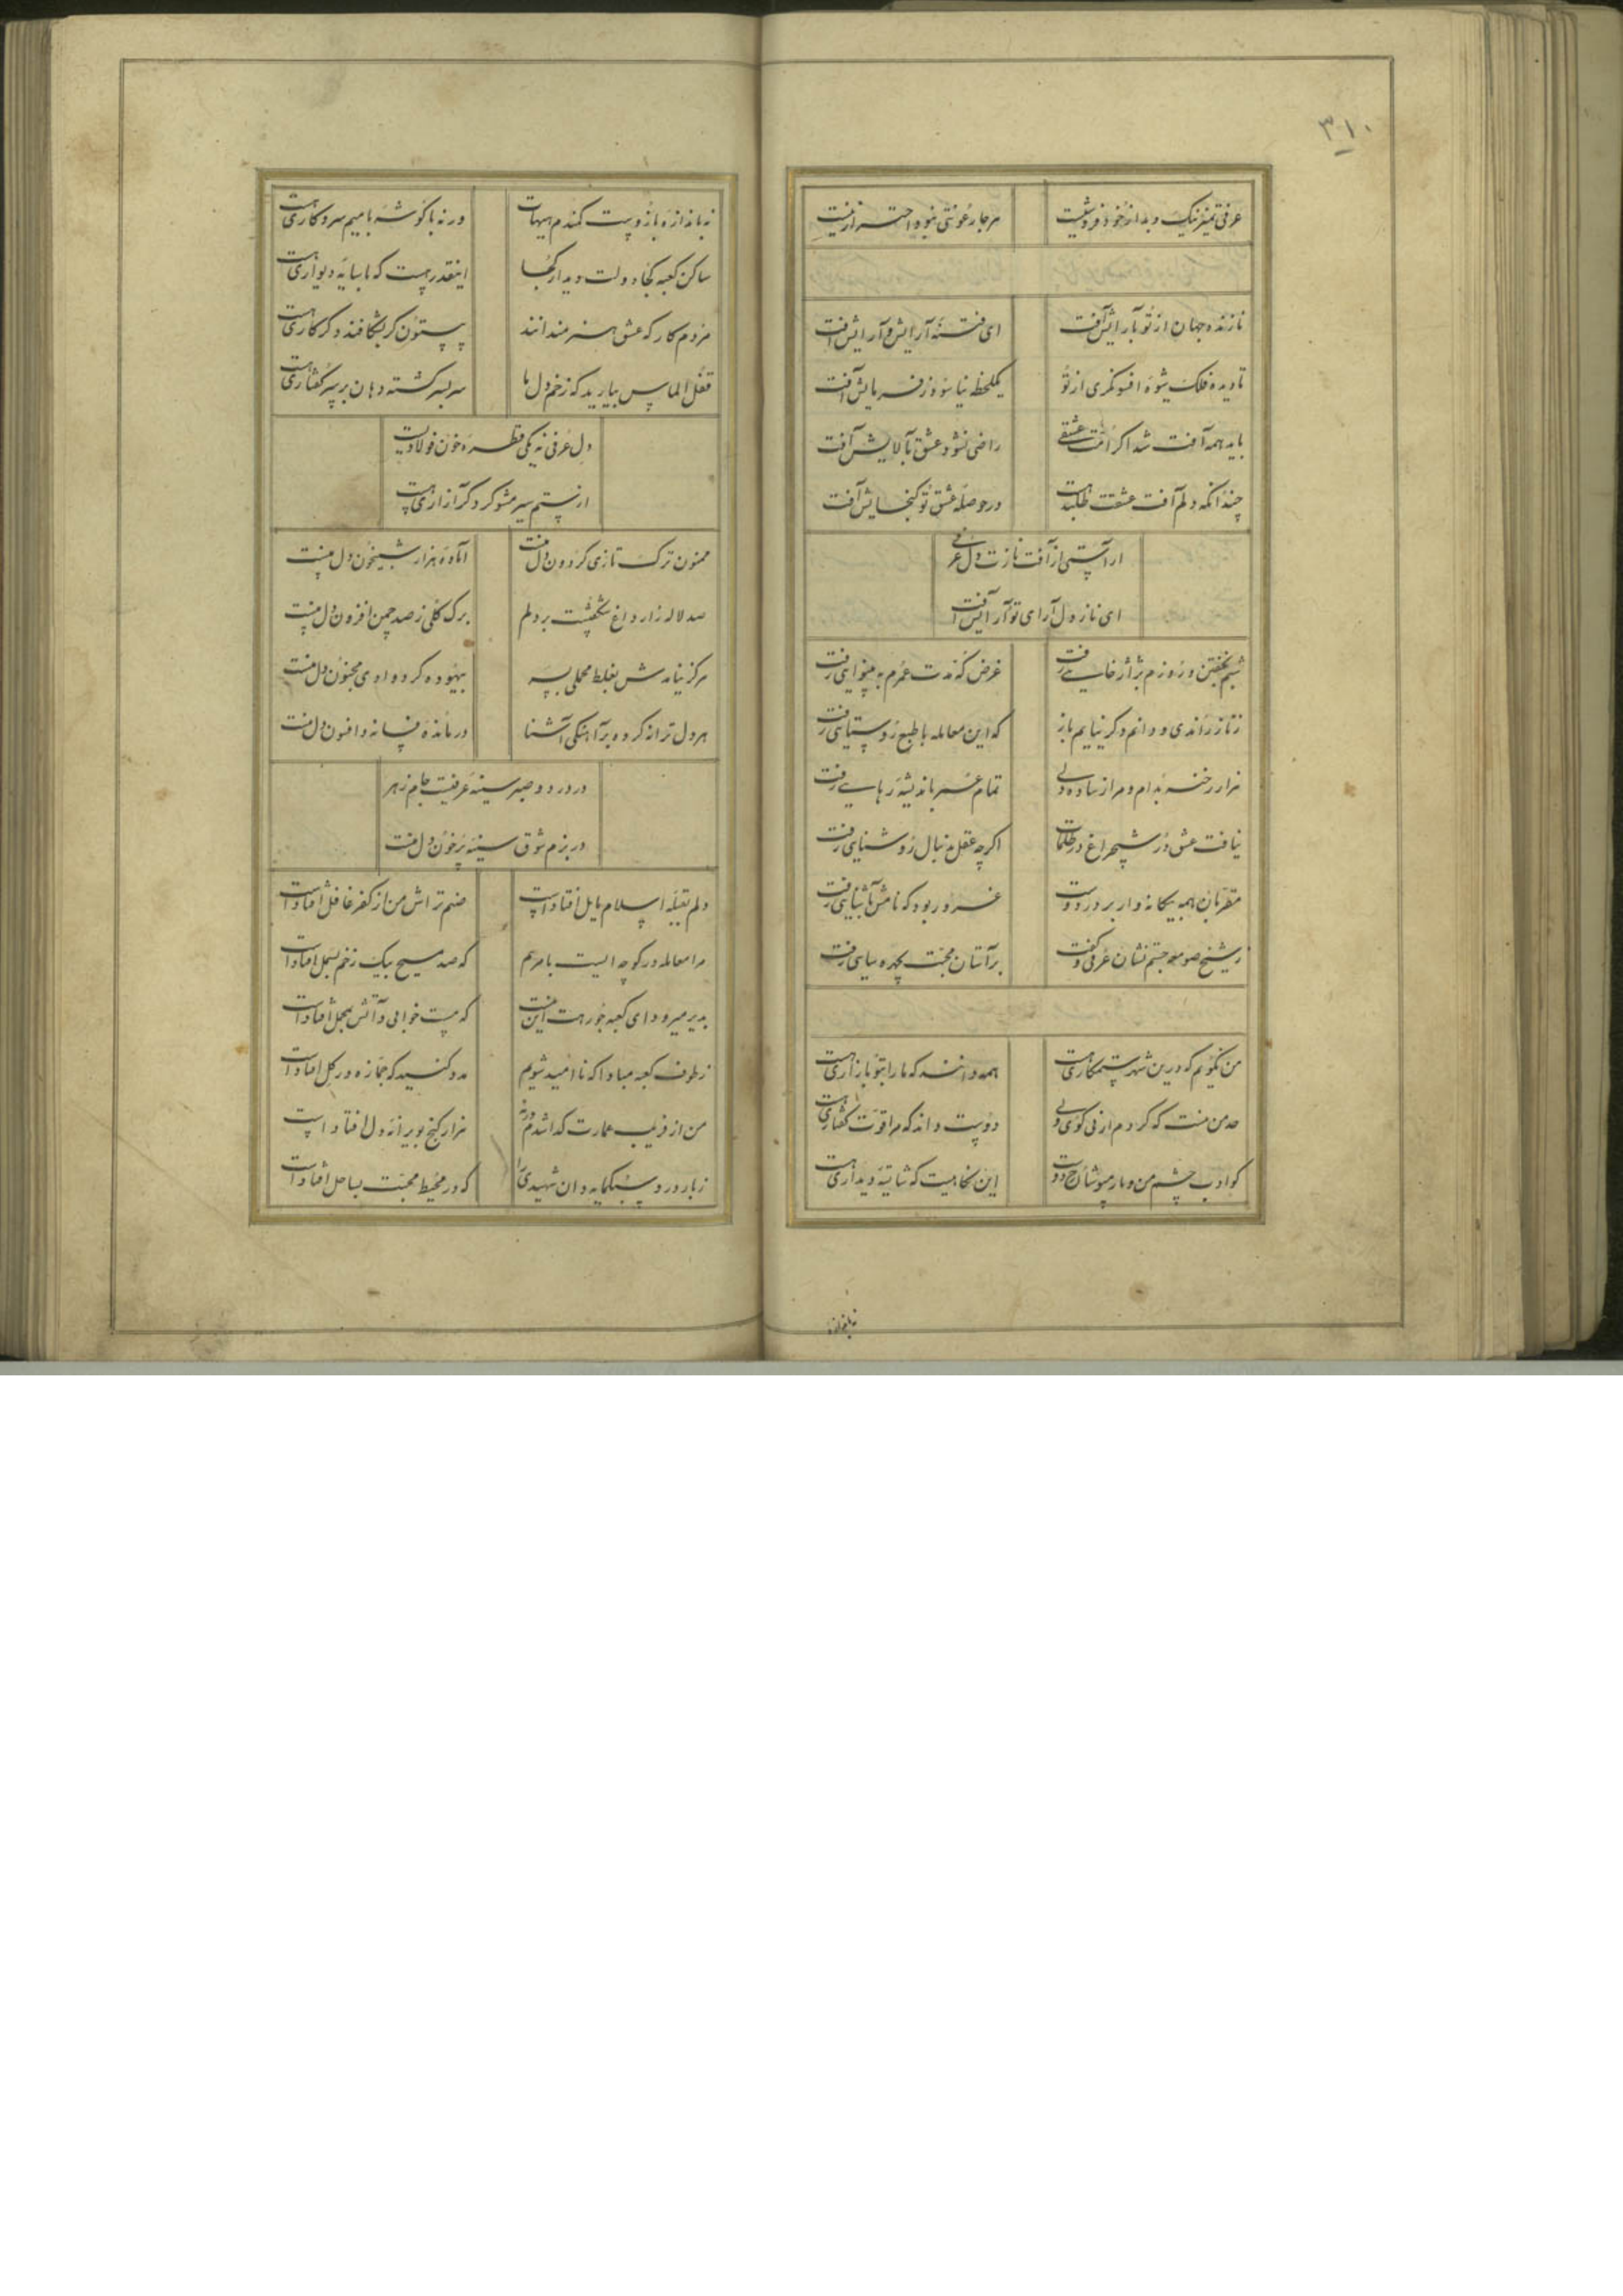 ۳۱۰
عرفی تمیز نیک و بد از خود فروشیست
هر جا رعونتی نبود احترازنیست
نازنده جهان از تو بآرایش آفت
ای فتنه آرایش و آرایش آفت
تا دیده فلک شیوه افسونگری از تو
یکلحظه نیاسوده ز فرمایش آفت
باید همه آفت شد اگر عشقی
راضی نشود عشق بآلایش آفت
چندانکه دلم آفت عشقت طلبیدست
در حوصله عشق تو گنجایش آفت
از آفت نازت دل عرفی
ای ناز دل آرای تو آرایش آفت
شبم بخفتن و روزم بژاژخایی رفت
غرض که مدت عمرم به بینوایی رفت
ز ناز راندی و دانم دگر نیایم باز
که این معامله با طبع روستایی رفت
هزار رخنه بدام و مرا ز ساده دلی
تمام عمر باندیشه رهایی رفت
نیافت عشق در شبچراغ در ظلمات
اگر چه عقل بدنبال روشنایی رفت
مقربان همه بیگانه وار بر در دوست
غرور بود که نامش بآشنایی رفت
ز شیخ صومعه جستم نشان عرفی گفت
بر آستان محبت بچهره سایی رفت
من نگویم که درین شهر ستمکاری هست
همه دانند که ما را بتو بازاری هست
حد من نیست که گردم ارنی گوی ولی
دوست داند که مرا قوت گفتاری هست
کو ادب چشم من و ما رمپوشان رخ دوست
این نگاهیست که شایسته دیداری هست
نه باندازه بازوست کمندم هیهات
ور نه با گوشه بامیم سر و کاری هست
ساکن کعبه کجا دولت دیدار کجا
اینقدر هست که با سایه دیواری هست
مزدم کار که عشق هنرمندانند
بیستون گر بشکافند دگر کاری هست
قفل الماس بیارید که زخم دل ما
سر بسر گشته دهان بر سر گفتاری هست
دل عرفی نه یکی قطره خون فولادیست
از ستم سیر مشو گر دگر آزاری هست
ممنون ترک تازی گردون دل منست
آماده هزار شبیخون دل منست
صد لاله زار داغ شگفتست بر دلم
برگ گلی ز صد چمن افزون دل منست
هرگز نیامدش بغلط محملی بسر
بیهوده گرد وادی مجنون دل منست
هر دل ترانه کرده بر آهنگی آشنا
درمانده فسانه و افسون دل منست
در درد و صبر سینه عرفیست جام زهر
در بزم شوق سینه پرخون دل منست
دلم بقبله اسلام مایل افتادست
صنم تراش من از کفر غافل افتادست
مرا معامله در کوچه ایست با مرهم
که صد مسیح بیک زخم بسمل افتادست
بدیر میرود ای کعبه جو رهت اینست
که مست خوابی و آتش بمحمل افتادست
ز طوف کعبه مبادا که ناامید شویم
مدد کنید که جمازه در گل افتادست
من از فریب عمارت گدا شدم ورنه
هزار گنج بویرانه دل افتادست
ز بار درد سبکمایه دان شهیدی را
که در محیط محبت بساحل افتادست